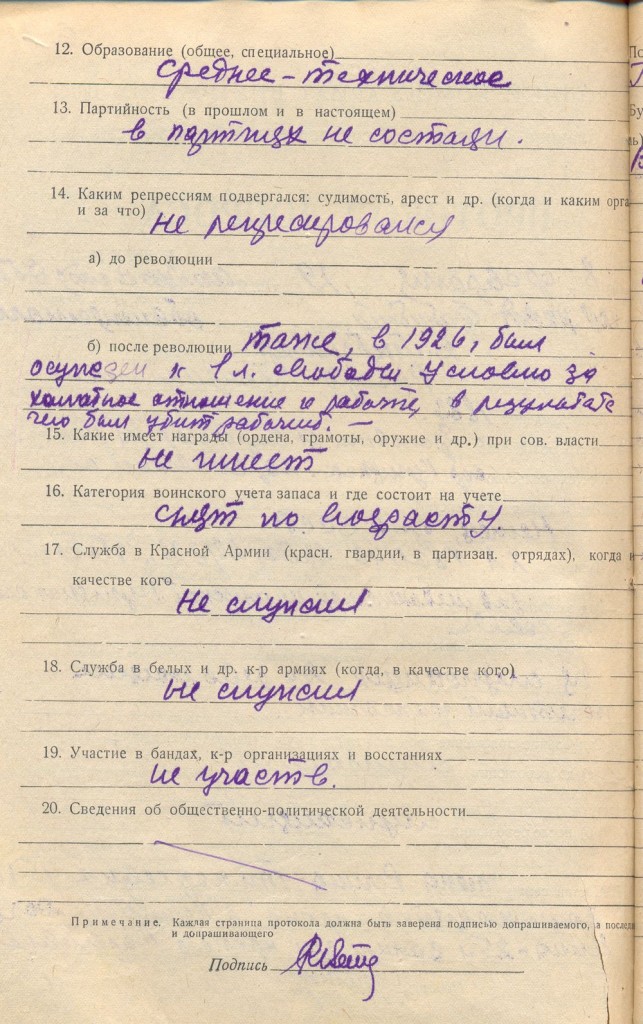 12. Образование (общее, специальное)
среднее - техническое
13. Партийность (в прошлом и в настоящем)
в партиях не состоял.
14. Каким репрессиям подвергался: судимость, арест и др. (когда и каким орга
и за что) не репресирова
а) до революции
б) после революции тоже, в 1926, был
осужден к 1 л. свободы условно за
халатное отношение к работе, в результате
чего был убит рабочий. —
15. Какие имеет награды (ордена, грамоты, оружие и др.) при сов. власти
не имеет
16. Категория воинского учета запаса и где состоит на учете
снят по возрасту.
17. Служба в Красной Армии (красн. гвардии, в партизан. отрядах), когда и
качестве кого
Не служил
18. Служба в белых и др. к-р армиях (когда, в качестве кого)
не служил
19. Участие в бандах, к-р организациях и восстаниях
не участв.
20. Сведения об общественно-политической деятельности
Примечание. Каждая страница протокола должна быть заверена подписью допрашиваемого, а послед
и допрашивающего
Подпись